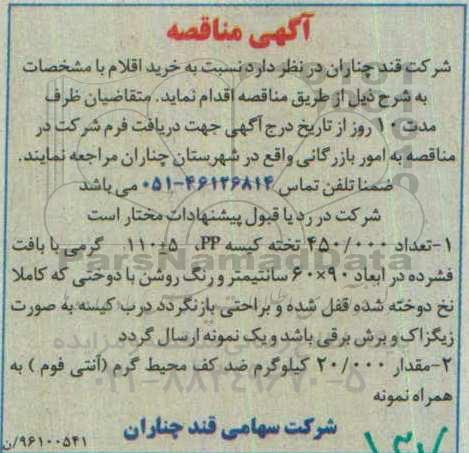 آگهی مناقصه
شرکت قند چناران در نظر دارد نسبت به خرید اقلام با مشخصات
به شرح ذیل از طریق مناقصه اقدام نماید. متقاضیان ظرف
مدت ۱۰ روز از تاریخ درج آگهی جهت دریافت فرم شرکت در
مناقصه به امور بازرگانی واقع در شهرستان چناران مراجعه نمایند.
ضمنا تلفن تماس ۴۶۱۲۶۸۱۴-۰۵۱ می باشد
شرکت در رد یا قبول پیشنهادات مختار است
۱-تعداد ۴۵۰/۰۰۰ تخته کیسه PP، ۱۱۰±۵ گرمی با بافت
فشرده در ابعاد ۹۰×۶۰ سانتیمتر و رنگ روشن با دوختی که کاملا
نخ دوخته شده قفل شده و براحتی بازنگردد درب کیسه به صورت
زیگزاک و برش برقی باشد و یک نمونه ارسال گردد
۲-مقدار ۲۰/۰۰۰ کیلوگرم ضد کف محیط گرم (آنتی فوم) به
همراه نمونه
شرکت سهامی قند چناران
۹۶۱۰۰۵۴۱/ن
ParsNamadData
۰۲۱-۸۸۳۴۹۶۷۰-۵